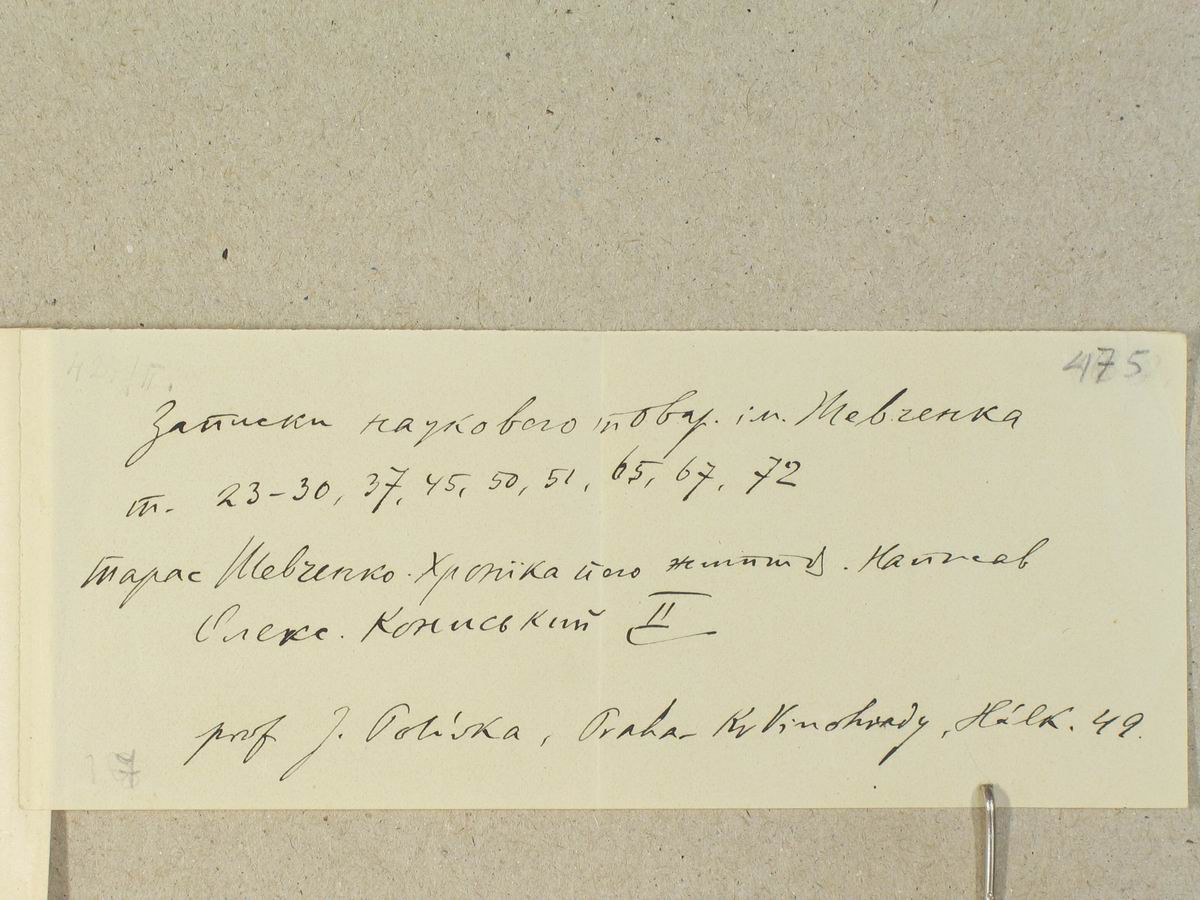 475
Записки наукового товар. ім. Шевченка
т. 23-30, 37, 45, 50, 51, 65, 67, 72
Тарас Шевченко. Хроніка його життя. Написав
Олекс. Кониський II
prof J. Polívka, Praha - Kr Vinohrady, Hálk. 49.